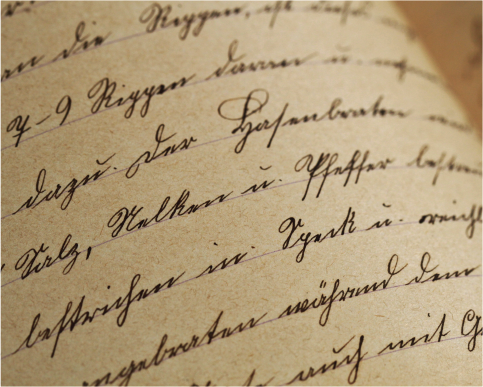 an die Rippen, ist
7-9 Rippen daran u.
dazu. Der Hasenbraten
Salz, Nelken u. Pfeffer
bestrichen in Speck u.
angebraten während dem
auch mit